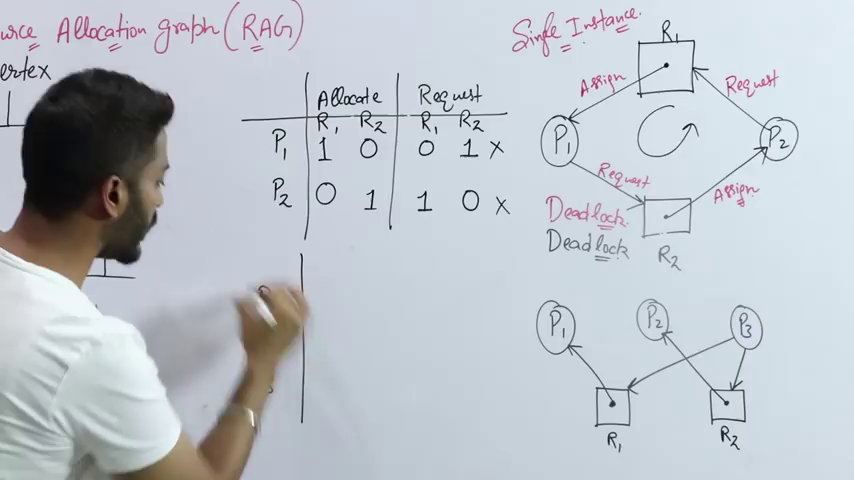 urce Allocation graph (RAG)
ertex
Allocate Request
R1 R2 R1 R2
P1 1 0 0 1 x
P2 0 1 1 0 x
Single Instance.
R1
Assign
Request
P1
P2
Request
Assign
Deadlock.
Deadlock
R2
P1 P2 P3
R1 R2